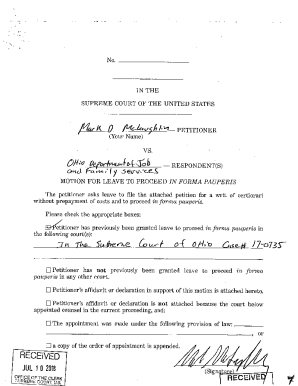 No.
IN THE
SUPREME COURT OF THE UNITED STATES
Mark D McLaughlin — PETITIONER
(Your Name)
VS.
Ohio Department of Job — RESPONDENT(S)
and Family Services
MOTION FOR LEAVE TO PROCEED IN FORMA PAUPERIS
The petitioner asks leave to file the attached petition for a writ of certiorari
without prepayment of costs and to proceed in forma pauperis.
Please check the appropriate boxes:
Petitioner has previously been granted leave to proceed in forma pauperis in
the following court(s):
In The Supreme Court of Ohio Case# 17-0735
Petitioner has not previously been granted leave to proceed in forma
pauperis in any other court.
Petitioner's affidavit or declaration in support of this motion is attached hereto.
Petitioner's affidavit or declaration is not attached because the court below
appointed counsel in the current proceeding, and:
The appointment was made under the following provision of law:
, or
a copy of the order of appointment is appended.
(Signature)
RECEIVED
JUL 10 2018
OFFICE OF THE CLERK
SUPREME COURT, U.S.
RECEIVED